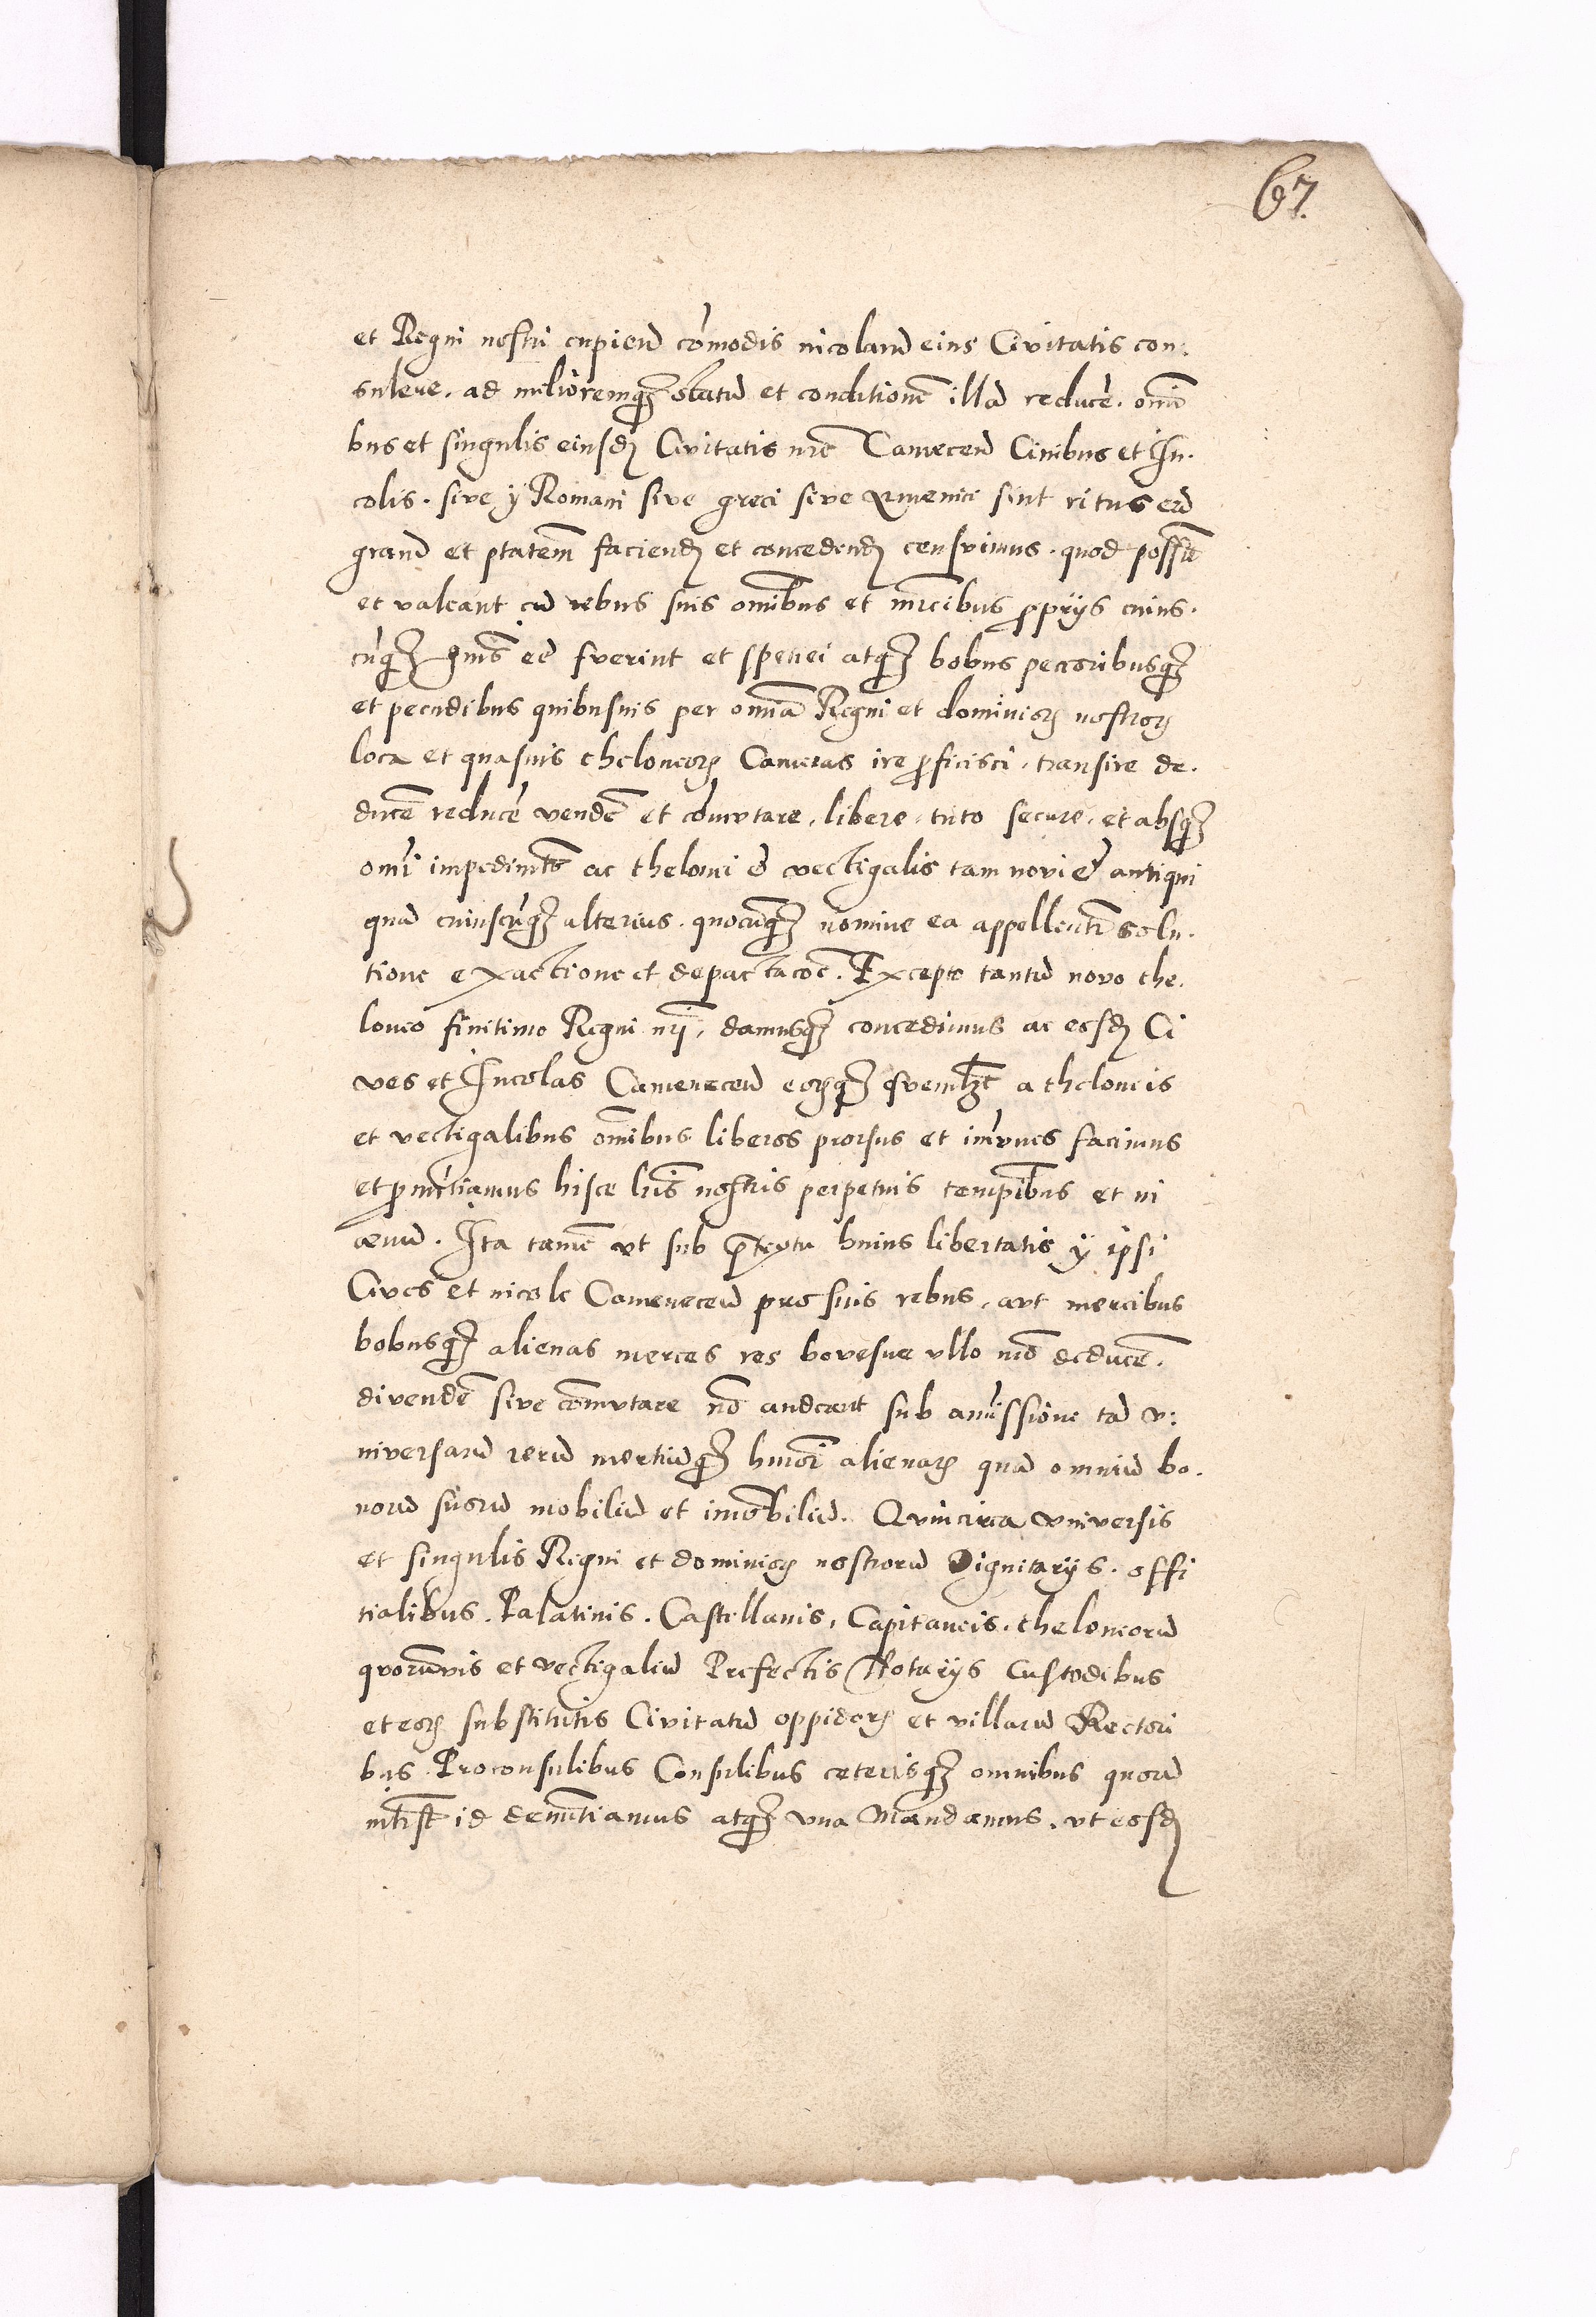 67.
et Regni nostri cupien̄ cōmodis incolarū eius Civitatis con:
sulere. ad melioremqȝ statū et conditionē illā reducēr. omī
bus et singulis eiusdȝ Civitatis nrē Camecen̄ Civibus et In-
colis. sive ÿ Romani sive greci sive armenici sint ritus eā
gratiā et ptatem̄ faciendȝ et concedendȝ censuimus. quod possīt
et valeant cū rebus suis omībus et mrcibus propriis cuius-
cūqȝ gnīs eē fuerint et spetiei atqȝ bobus pecoribusqȝ
et pecudibus quibusvis per omīa Regni et dominioꝝ nostroꝝ
loca et quasvis theloneoꝝ Cameras ire proficisci. transire de-
ducēr reducēr vendēr et cōmutare. libere. tuto secure. et absqȝ
omī impedimto ac thelonei et vectigalis tam novi et antiqui
quā cuiuscūqȝ alterius. quocūqȝ nomine ea appellentr solu-
tione exactione et depactacōe. Excepto tantū novo the-
loneo finitimo Regni nrī. damusqȝ concedimus ac eosdȝ Ci
ves et Incolas Camenecen̄ eoꝝqȝ quemlȝt a theloneis
et vectigalibus omībus liberos prorsus et imūnes facimus
et pronūctiamus hisce lrīs nostris perpetuis tempībus et in
aevū. Ita tamē ut sub p̄textu huius libertatis ÿ ipsi
Cives et incole Camenecen̄ pro suis rebus. aut mercibus
bobusqȝ alienas merces res bovesve ullo mō deducēr.
divendēr sive com̄utare nō audeant sub amīssione tā u:
niversarū rerū mertiūqȝ hmōi alienaꝝ quā omniū bo-
norū suorū mobiliū et imōbiliū. Quincirca universis
et singulis Regni et dominioꝝ nostrorū Dignitariis. offi
tialibus. Palatinis. Castellanis. Capitaneis. theloneorū
quorūvis et vectigaliū Prefectis Notariis Custodibus
et eoꝝ substitutis Civitatū oppidoꝝ et villarū Rectori
bus. Proconsulibus Consulibus ceterisqȝ omnibus quorū
intrēst id denūtiamus atqȝ una Mandamus. ut eosdȝ